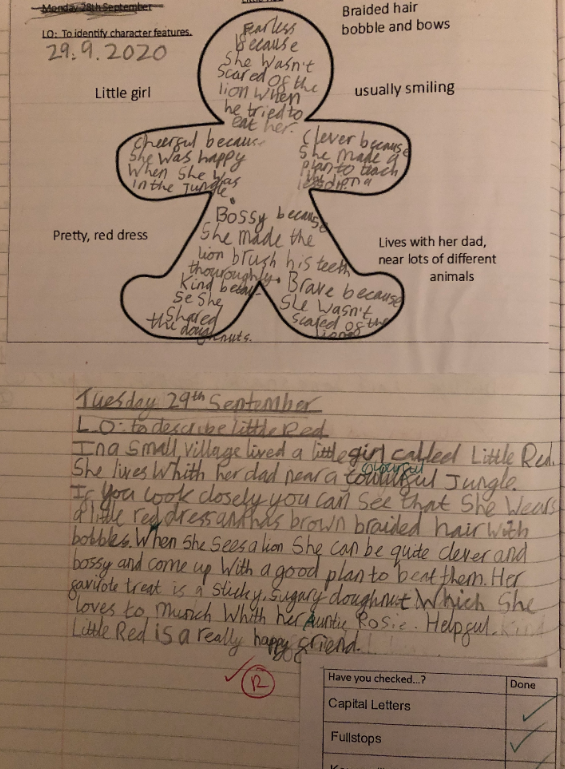 Monday 28th September
LO: To identify character features.
29.9.2020
Braided hair
bobble and bows
Little girl
usually smiling
Pretty, red dress
Lives with her dad,
near lots of different
animals
Fearless
because
She wasn't
scared of the
lion when
he tried to
eat her.
cheerful because
She was happy
when she was
in the jungle.
Clever because
She made a
plan to teach
lion a
lesson.
Bossy because
She made the
lion brush his teeth
thouroughly.
Kind becau
se She
Shared
the doughnuts.
Brave because
She wasn't
scared of the
Tuesday 29th September
L.O: to describe little Red
In a small village lived a little girl called Little Red.
She lives whith her dad near a colourful Jungle.
If you look closely you can see that She Wears
a little red dress and has brown braided hair with
bobbles. When She Sees a lion She can be quite clever and
bossy and come up with a good plan to beat them. Her
favirote treat is a sticky, sugary doughnut which She
loves to munch Whith her Auntie Rosie. Helpful, Kind
Little Red is a really happy friend.
R
Have you checked...?
Done
Capital Letters
Fullstops